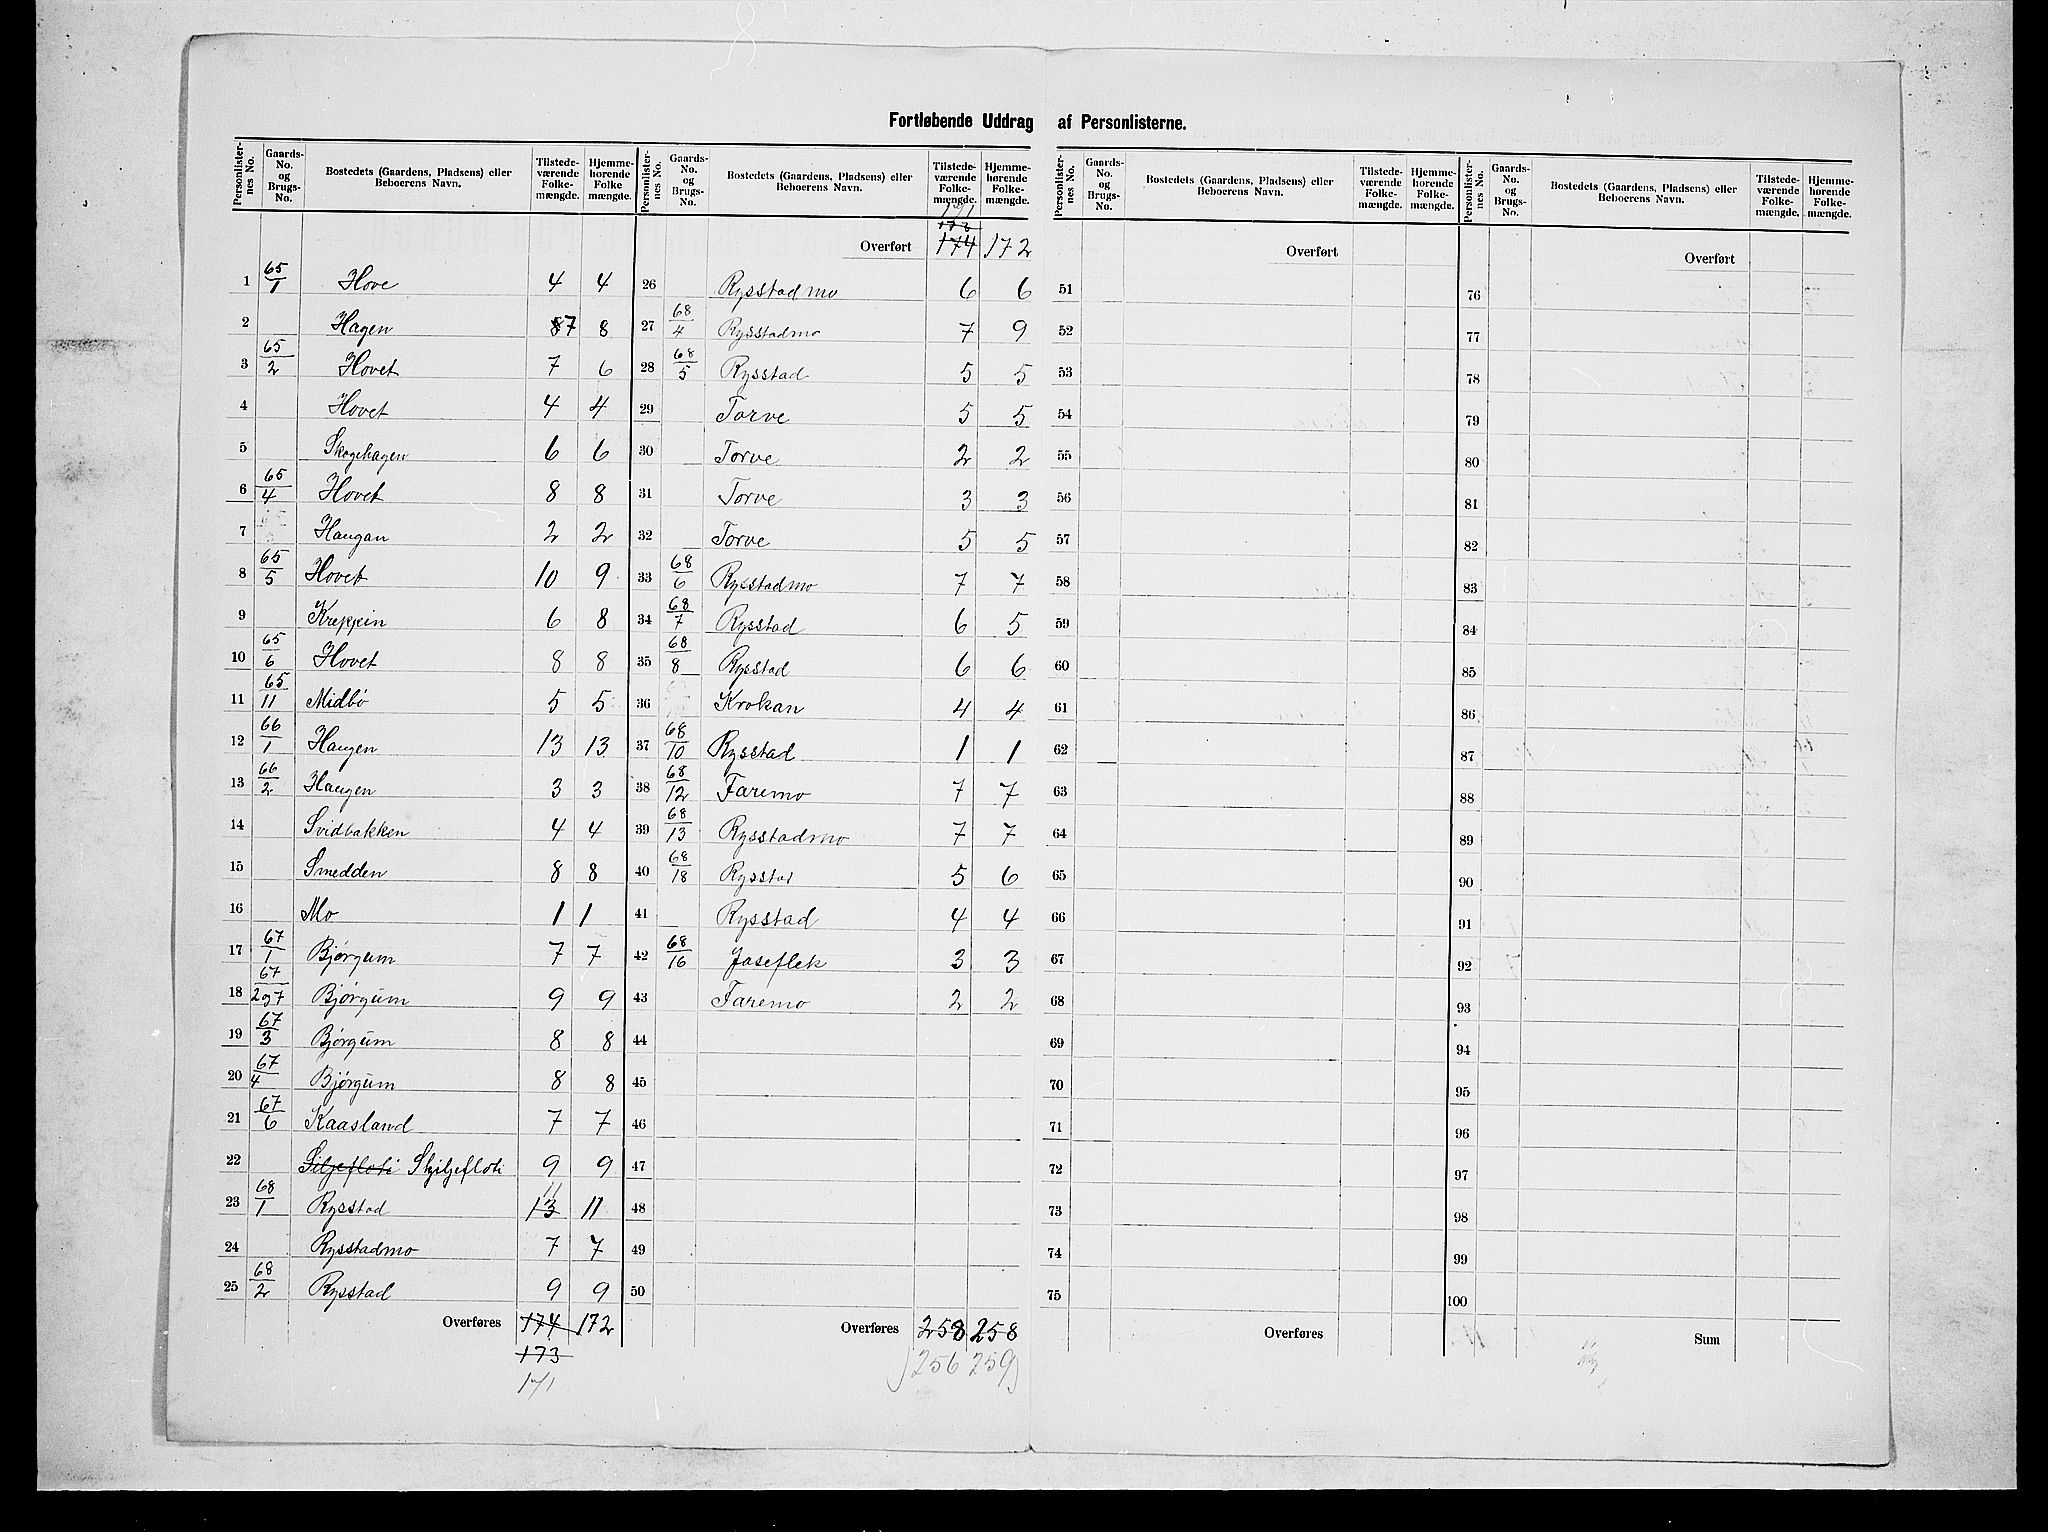 Fortløbende Uddrag af Personlisterne.
Personlister-nes No. | Gaards-No. og Brugs-No. | Bostedets (Gaardens, Pladsens) eller Beboerens Navn. | Tilstede-værende Folke-mængde. | Hjemme-hørende Folke mængde.
1 65/1 Hove 4 4
2 Hagen 87 8
3 65/2 Hovet 7 6
4 Hovet 4 4
5 Skogehagen 6 6
6 65/4 Hovet 8 8
7 Haugan 2 2
8 65/5 Hovet 10 9
9 Kreppin 6 8
10 65/6 Hovet 8 8
11 65/11 Midbø 5 5
12 66/1 Haugen 13 13
13 66/2 Haugen 3 3
14 Svidbakken 4 4
15 Smedden 8 8
16 Mo 1 1
17 67/1 Bjørgum 7 7
18 67/2 og 7 Bjørgum 9 9
19 67/3 Bjørgum 8 8
20 67/4 Bjørgum 8 8
21 67/6 Kaasland 7 7
22 Siljefloti Skjiljefloti 9 9
23 68/1 Rysstad 13 11 11
24 Rysstadmo 7 7
25 68/2 Rysstad 9 9
Overføres 174 172
173
171
Personlister-nes No. | Gaards-No. og Brugs-No. | Bostedets (Gaardens, Pladsens) eller Beboerens Navn. | Tilstede-værende Folke-mængde. | Hjemme-hørende Folke-mængde.
171
173
Overført 174 172
26 Rysstadmo 6 6
27 68/4 Rysstadmo 7 9
28 68/5 Rysstad 5 5
29 Torve 5 5
30 Torve 2 2
31 Torve 3 3
32 Torve 5 5
33 68/6 Rysstadmo 7 7
34 68/7 Rysstad 6 5
35 68/8 Rysstad 6 6
36 Krokan 4 4
37 68/10 Rysstad 1 1
38 68/12 Faremo 7 7
39 68/13 Rysstadmo 7 7
40 68/18 Rysstad 5 6
41 Rysstad 4 4
42 68/16 Joseflek 3 3
43 Faremo 2 2
44
45
46
47
48
49
50
Overføres 258 258
256 259
Personlister-nes No. | Gaards-No. og Brugs-No. | Bostedets (Gaardens, Pladsens) eller Beboerens Navn. | Tilstede-værende Folke-mængde. | Hjemme-hørende Folke-mængde.
Overført
51
52
53
54
55
56
57
58
59
60
61
62
63
64
65
66
67
68
69
70
71
72
73
74
75
Overføres
Personlister-nes No. | Gaards-No. og Brugs-No. | Bostedets (Gaardens, Pladsens) eller Beboerens Navn. | Tilstede-værende Folke-mængde. | Hjemme-hørende Folke-mængde.
Overført
76
77
78
79
80
81
82
83
84
85
86
87
88
89
90
91
92
93
94
95
96
97
98
99
100
Sum